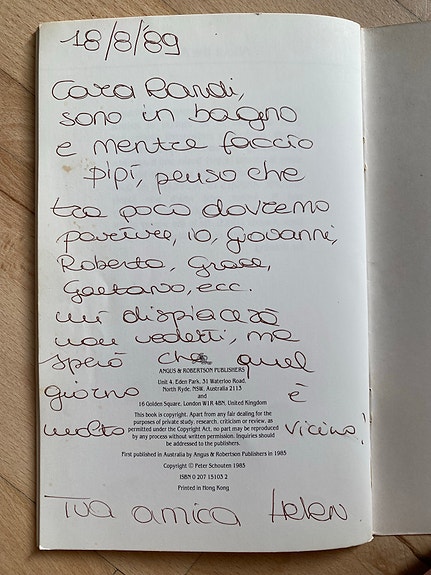 18/8/'89
Cara Randi,
sono in bagno
e mentre faccio
pipí, penso che
tra poco dovremo
partire, io, Giovanni,
Roberto, Grace,
Gaetano, ecc.
mi dispiacerà
non vederti, ma
spero che quel
ANGUS & ROBERTSON PUBLISHERS
Unit 4, Eden Park, 31 Waterloo Road,
North Ryde, NSW, Australia 2113
giorno and è
16 Golden Square, London W1R 4BN, United Kingdom
This book is copyright. Apart from any fair dealing for the
purposes of private study, research, criticism or review, as
molto vicino!
permitted under the Copyright Act, no part may be reproduced
by any process without written permission. Inquiries should
be addressed to the publishers.
First published in Australia by Angus & Robertson Publishers in 1985
Copyright © Peter Schouten 1985
ISBN 0 207 15103 2
Printed in Hong Kong
Tua amica Helen